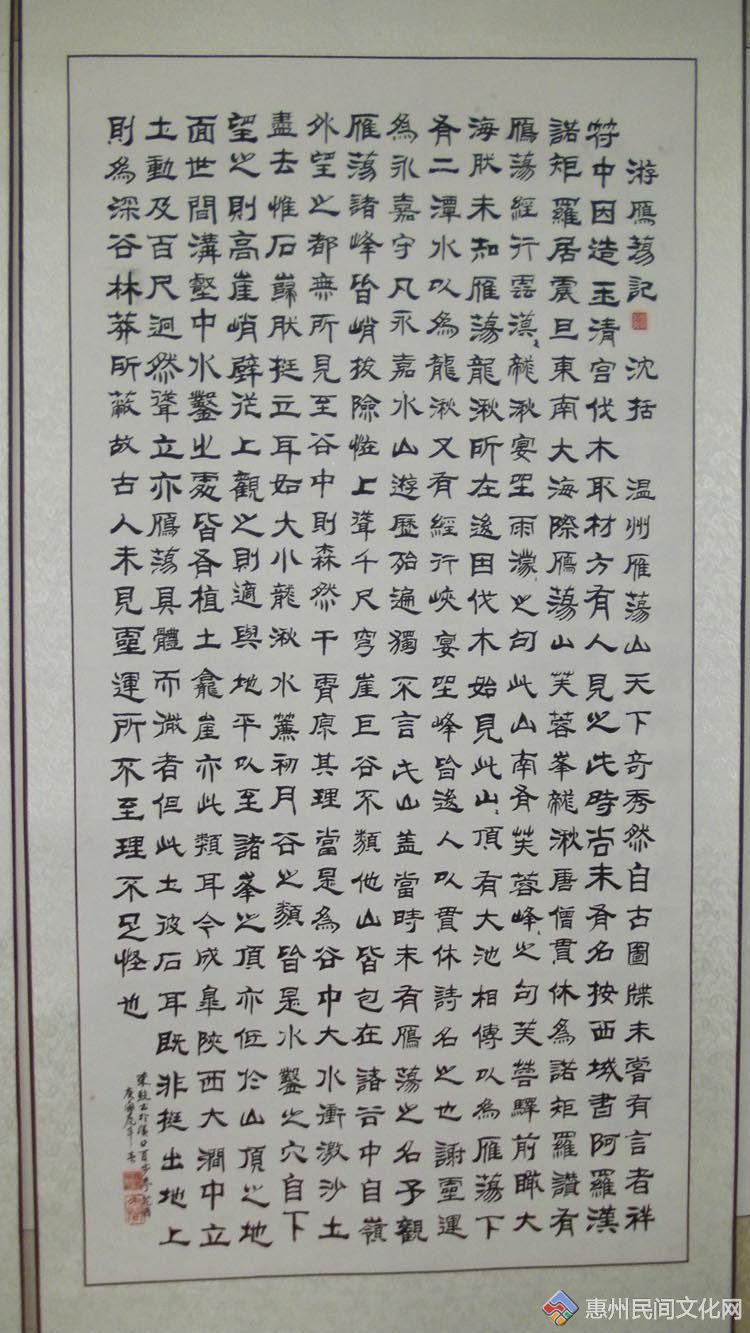 游鴈蕩記 沈括 温州雁蕩山天下奇秀然自古圖牒未嘗有言者祥
符中因造玉清宫伐木取材方有人見之此時尚未有名按西域書阿羅漢
諾矩羅居震旦東南大海際鴈蕩山芙蓉峯龍湫唐僧貫休為諾矩羅讚有
鴈蕩經行雲漠〻龍湫宴坐雨濛〻之句此山南有芙蓉峰〻之句芙蓉驛前瞰大
海然未知雁蕩龍湫所在後因伐木始見此山〻頂有大池相傳以為雁蕩下
有二潭水以為龍湫又有經行峽宴坐峰皆後人以貫休詩名之也謝靈運
為永嘉守凡永嘉水山遊歷殆遍獨不言此山蓋當時未有鴈蕩之名予觀
雁蕩諸峰皆峭拔險怪上聳千尺穹崖巨谷不類他山皆包在諸谷中自嶺
外望之都無所見至谷中則森然干霄原其理當是為谷中大水衝激沙土
盡去惟石巋然挺立耳如大小龍湫水簾初月谷之類皆是水鑿之穴自下
望之則高崖峭壁從上觀之則適與地平以至諸峯之頂亦低於山頂之地
面世間溝壑中水鑿之處皆有植土龕崖亦此類耳今成皋陝西大澗中立
土動及百尺迥然聳立亦鴈蕩具體而微者但此土彼石耳既非挺出地上
則為深谷林莽所蔽故古人未見靈運所不至理不足怪也
惠州民间文化网